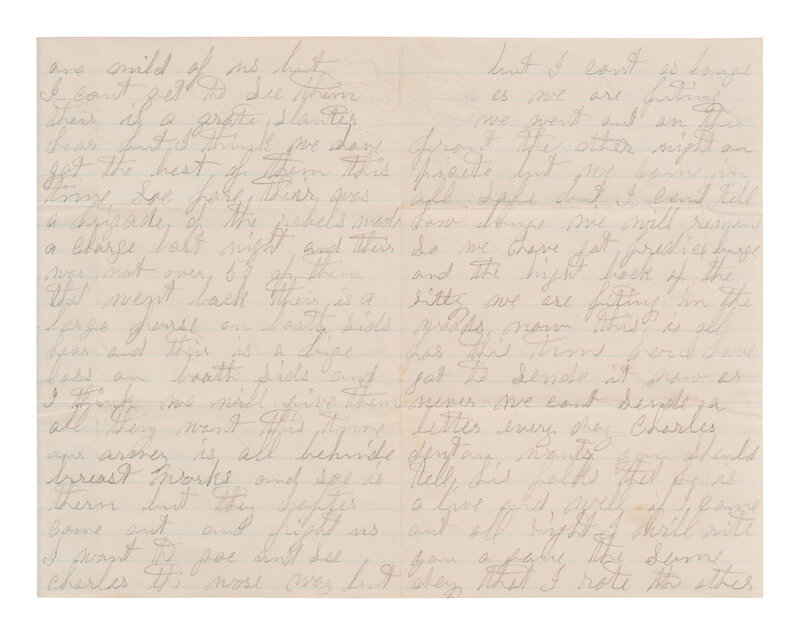 one mild of us but
I cant get to see them
their is a grate slauter
hear but I think we have
got the best of them this
time soe fare their was
a brigade of the rebels made
a charge last night and their
was not over 50 of them
that went back their is a
large forse on boath sids
hear and their is a
loss on boath sids and
I think we will give them
all they want this time
our armey is all behinde
breast works and soe is
thern but they hafter
come out and fight us
I want to goe and see
Charles the wose way but
but I cant as longe
as we are fiting
we went out on the
front the other night on
picete but we came in
all safe but I cant tell
how longe we will remane
So we have got fredricburge
and the hight back of the
sitty we are fiting in the
woods now this is all
for this time for I have
got to sende it now or
never we cant sende a
letter every day Charles
wants you should
tell his folks that he is
a live and well if I come
out all right I will rite
you a gane the same
day that I rote the other